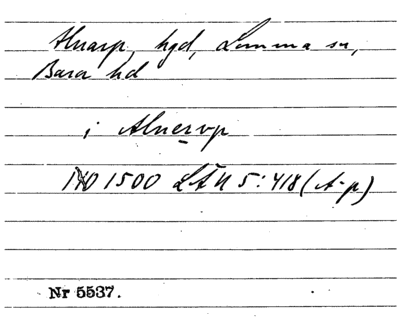 Alnarp, hgd, Lomma sn,
Bara hd
i Alnervp
1500 LÄU 5:418 (A-p)
Nr 5537.